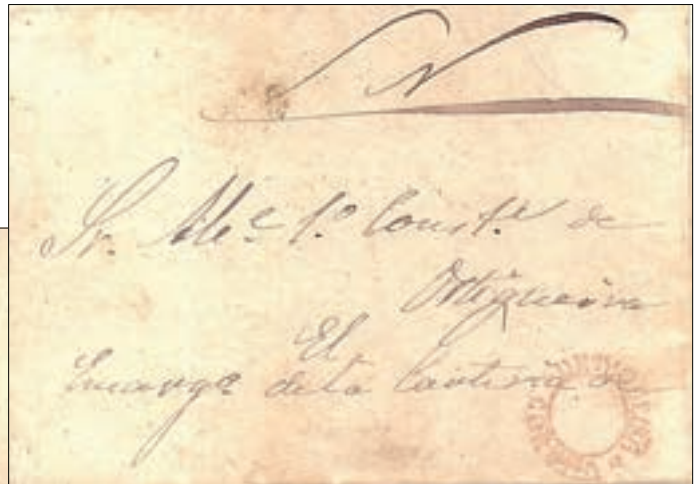 S N
Sr. Alc.e 1.º Const.l de
Ortigueira
El
Encarg.º de la Cartería de